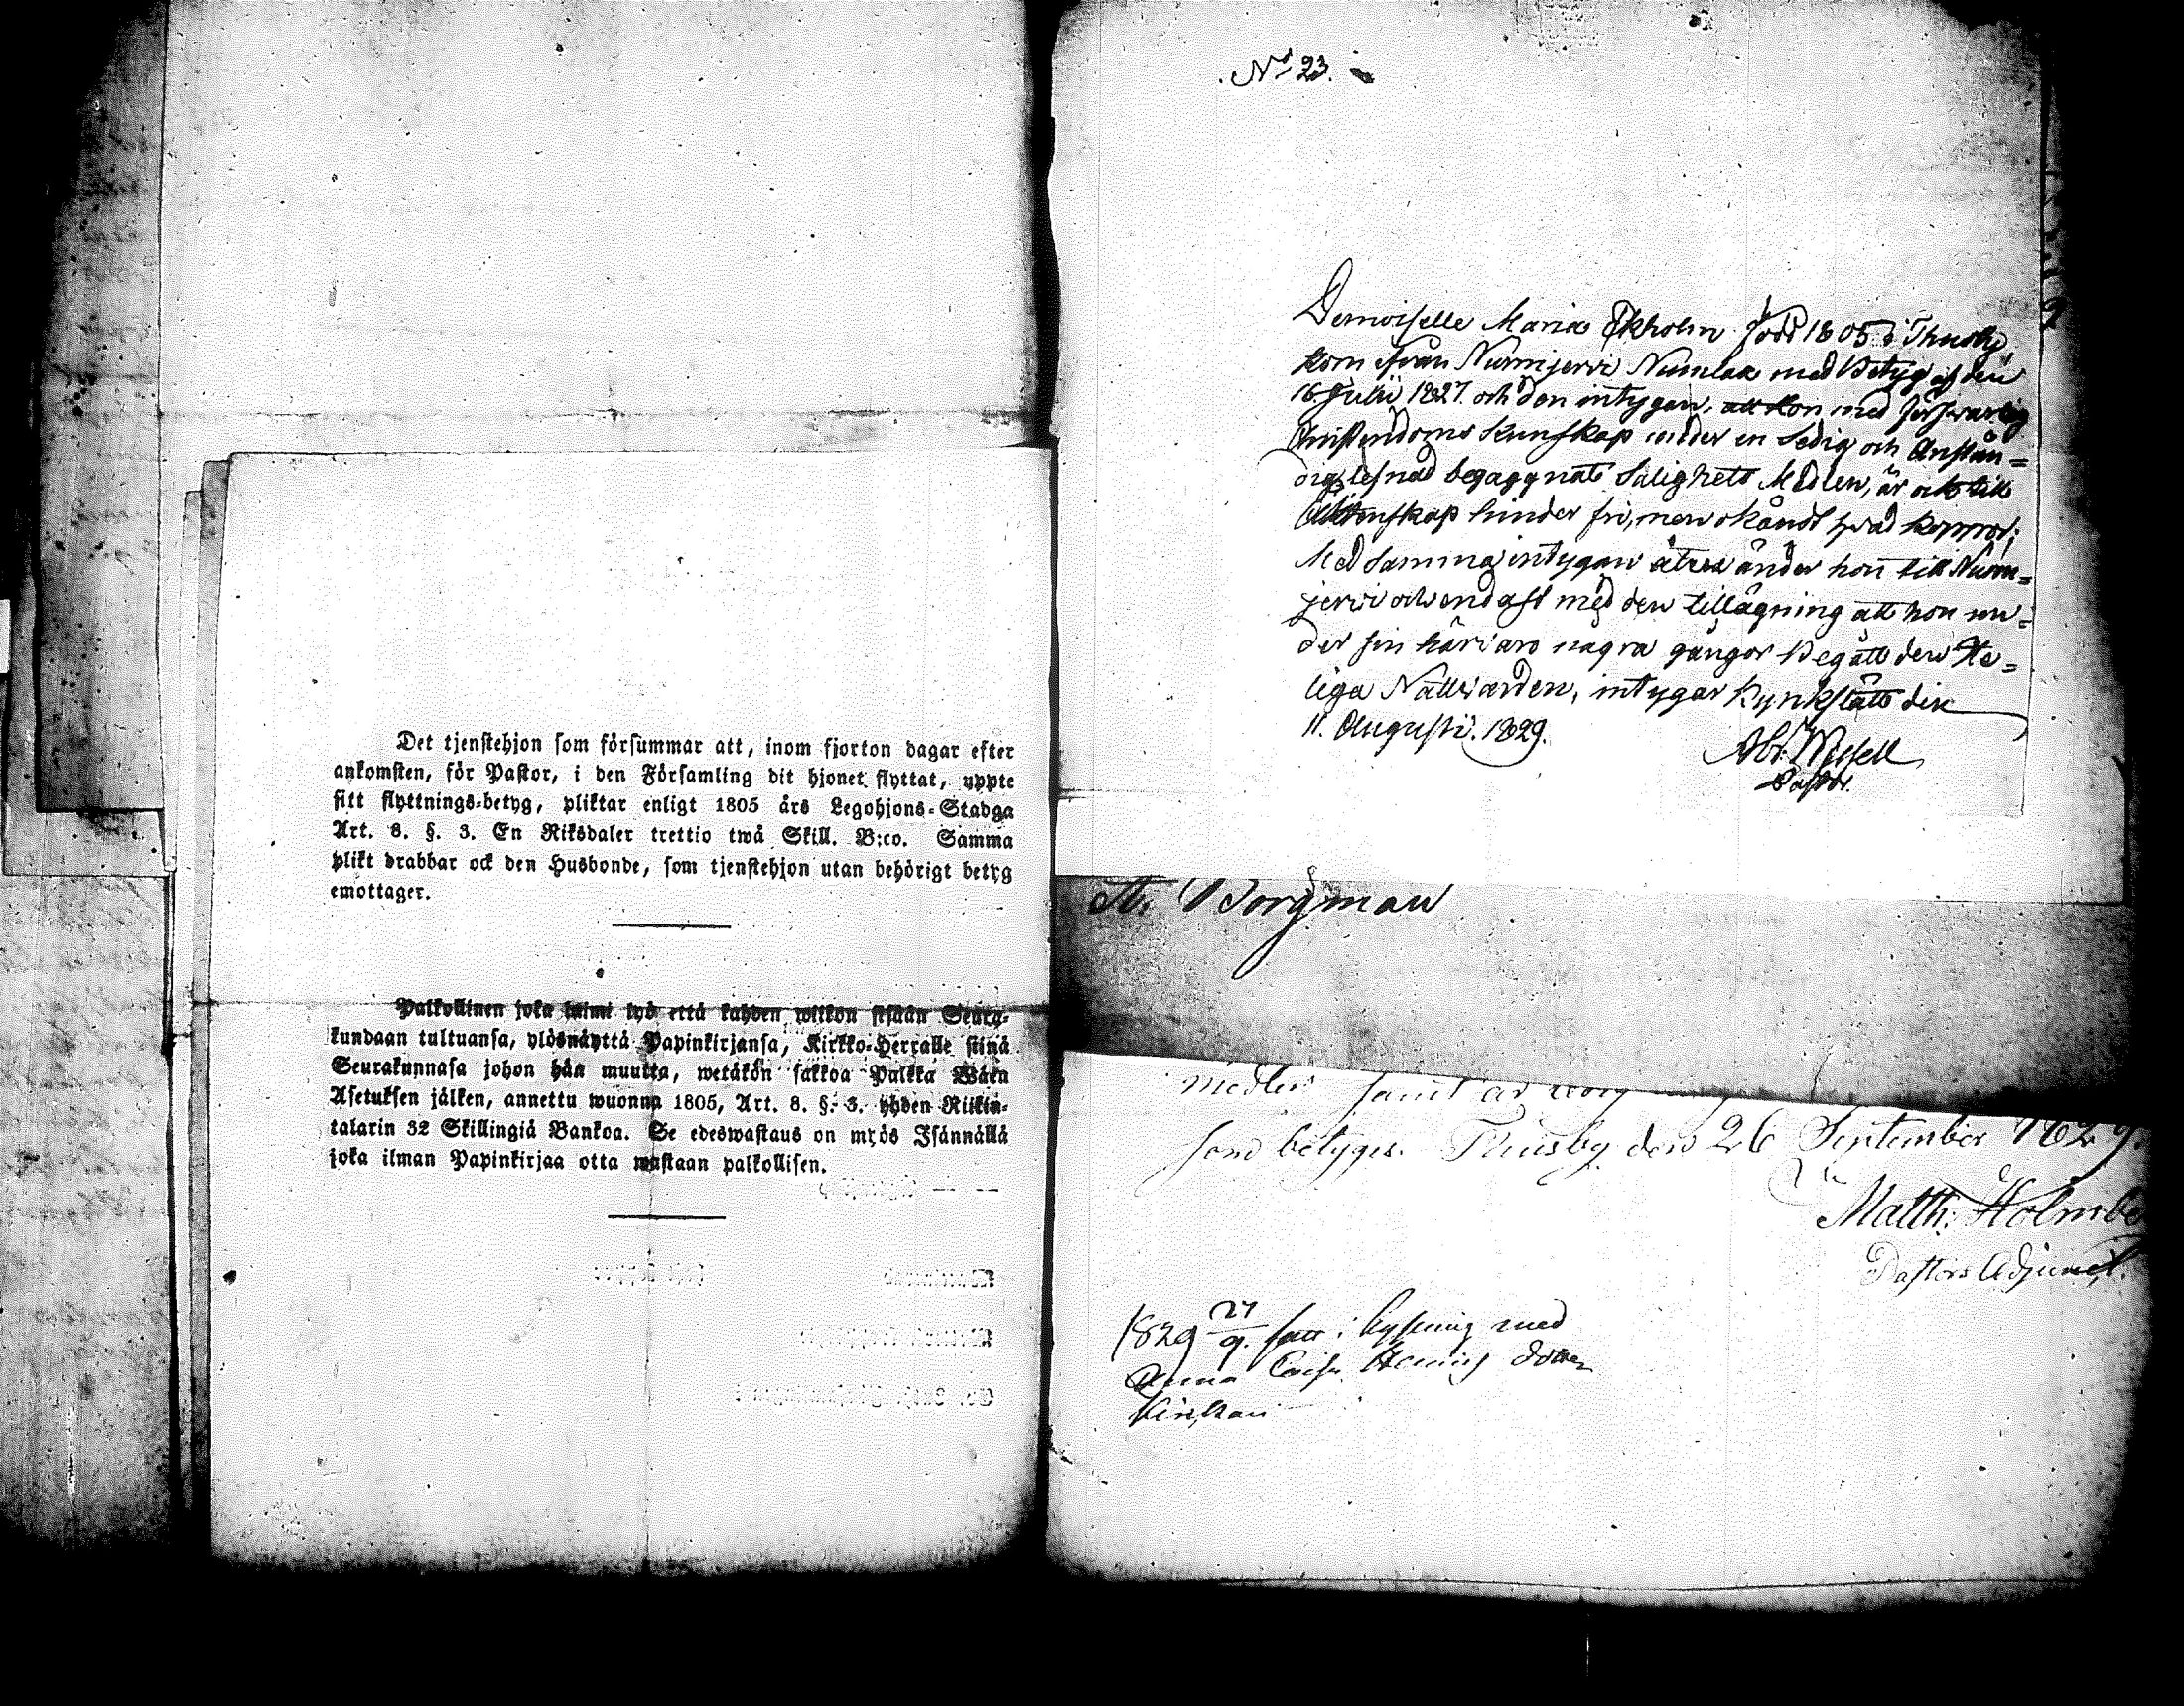 Det tjenstehjon som försummar att, inom fjorton dagar efter
ankomsten, för Pastor, i den Församling dit hjonet flyttat, uppte
sitt flyttnings-betyg, pliktar enligt 1805 års Legohjons-Stadga
Art. 8. §. 3. En Riksdaler trettio twå Skill. B:co. Samma
plikt drabbar ock den Husbonde, som tjenstehjon utan behörigt betyg
emottager.
Palkollinen joka laimi lyö että kahden wiikon sisään Seura-
kundaan tultuansa, ylösnäyttä Papinkirjansa, Kirkko-Herralle siinä
Seurakunnasa johon hän muutta, wetäkön sakkoa Palkka Wäen
Asetuksen jälken, annettu wuonna 1805, Art. 8. §. 3. yhden Riikin-
talarin 32 Skillingiä Bankoa. Se edeswastaus on myös Isännällä
joka ilman Papinkirjaa otta wastaan palkollisen.
No 23.
Demoiselle Maria Ekholm född 1805 i Thusby
kom ifrån Nurmijerwi Numlax med Betyg af den
16 Julii 1827. och den intygan, att hon med förswarlig
Christendoms Kunskap under en Sedig och Anstän=
dig lefnad begagnat Salighets Medlen, är ock till
Ächtenskap hinder fri, men okändt hwad koppor;
Med samma intygan återsänder hon till Nurm=
jerwi och endast med den tillägning att hon un=
der sin härvaro några gångor Begått den He=
liga Nattvarden, intygar Kyrkslätt den
11. Augusti. 1829.
Pastor.
A. Borgman
medlen samt är
som betyges. Thusby den 26 September 1829.
Matth. Holmbe
Pastors Adjunct.
1829 27/9. lyses i lysning med
Anna Caisa Henrics dotter